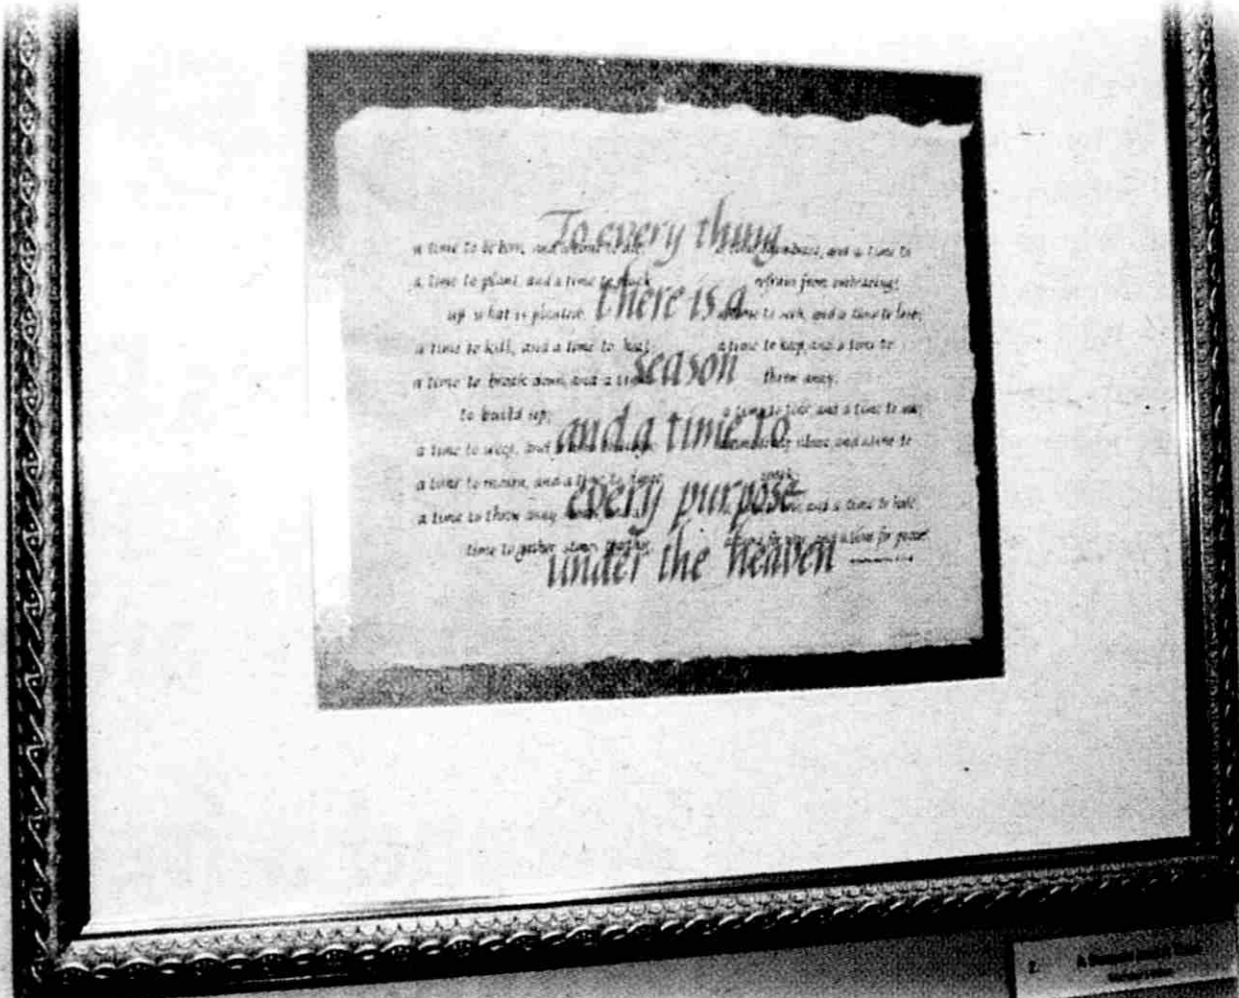 To every thing
there is a
season
and a time to
every purpose
under the heaven
a time to be born, and a time to die;
a time to plant, and a time to pluck
up what is planted;
a time to kill, and a time to heal;
a time to break down, and a time
to build up;
a time to weep, and a time to laugh;
a time to mourn, and a time to dance;
a time to throw away stones, and a
time to gather stones together;
a time to embrace, and a time to
refrain from embracing;
a time to seek, and a time to lose;
a time to keep, and a time to
throw away;
a time to tear, and a time to sew;
a time to keep silence, and a time to
speak;
and a time to hate
a time for war, and a time for peace
2.